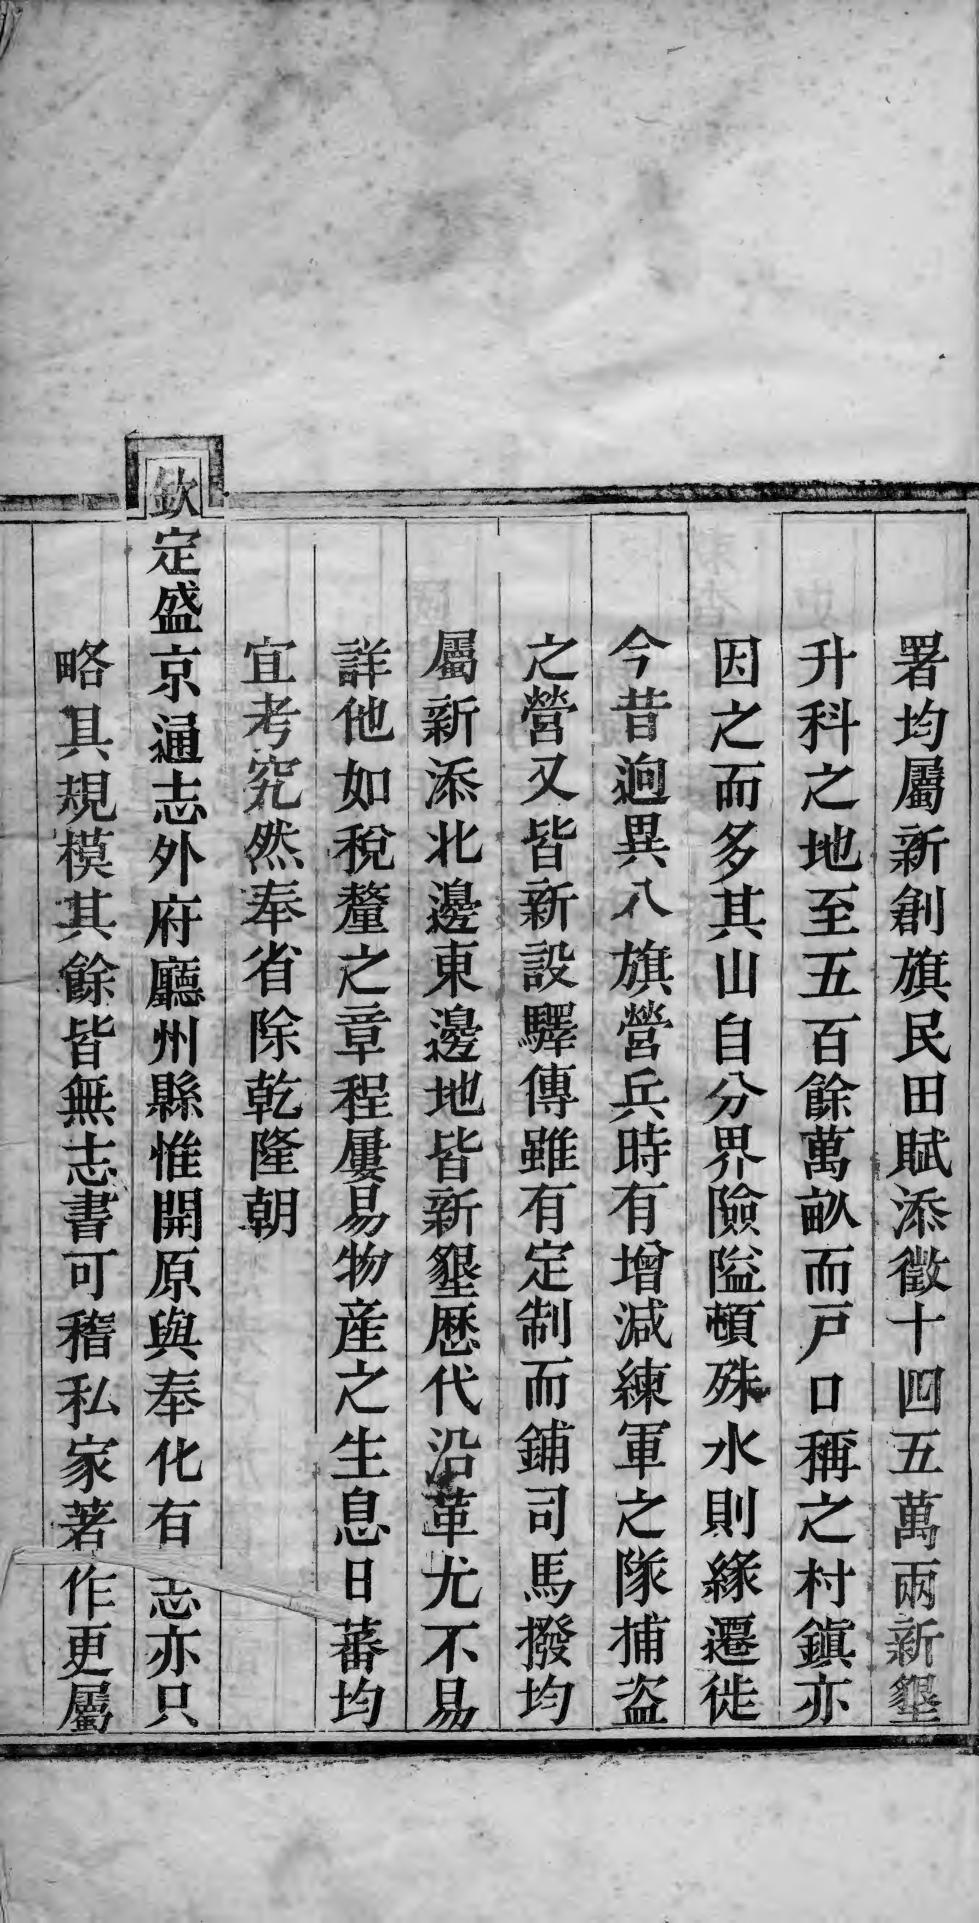 署均屬新創旗民田賦添徵十四五萬兩新墾
升科之地至五百餘萬畝而戸口稱之村鎭亦
因之而多其山自分界險隘頓殊水則緣遷徙
今昔逈異八旗營兵時有增減練軍之隊捕盜
之營又皆新設驛傳雖有定制而鋪司馬撥均
屬新添北邊東邊地皆新墾歴代沿革尤不易
詳他如稅釐之章程屢易物産之生息日蕃均
宜考究然奉省除乾隆朝
欽定盛京通志外府廳州縣惟開原與奉化有志亦只
略具規模其餘皆無志書可稽私家著作更屬